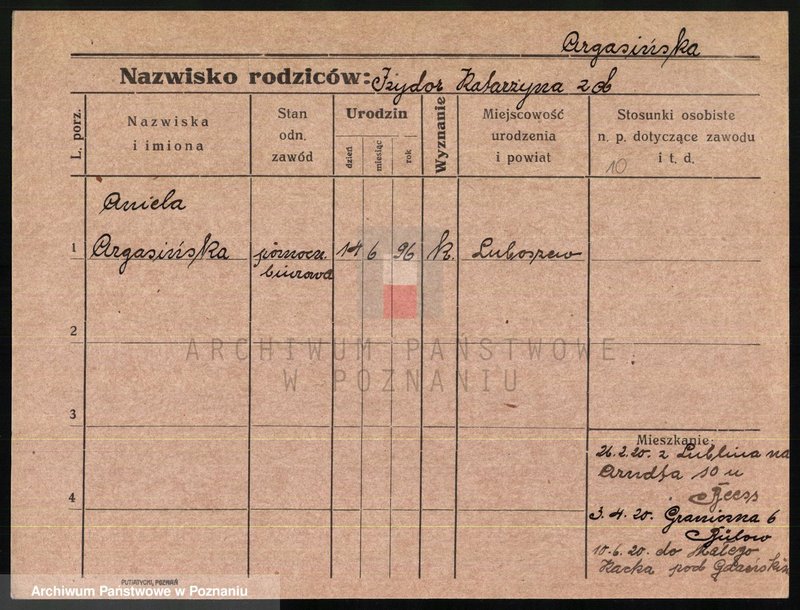 Argasińska
Nazwisko rodziców: Izydor Katarzyna zd
L. porz.
Nazwiska
i imiona
Stan
odn.
zawód
Urodzin
dzień
miesiąc
rok
Wyznanie
Miejscowość
urodzenia
i powiat
Stosunki osobiste
n. p. dotyczące zawodu
i t. d.
10
Aniela
1 Argasińska pomocn. 14 6 96 k. Luboszew
biurowa
2
ARCHIWUM PAŃSTWOWE
W POZNANIU
3
Mieszkanie:
26.2.20. z Lublina na
Arndta 10 u
4
3.4.20. Graniczna 6
Bülow
10.6.20. do Małego
Kacka pod Gdańskiem
PUTIATYCKI, POZNAŃ
Archiwum Państwowe w Poznaniu